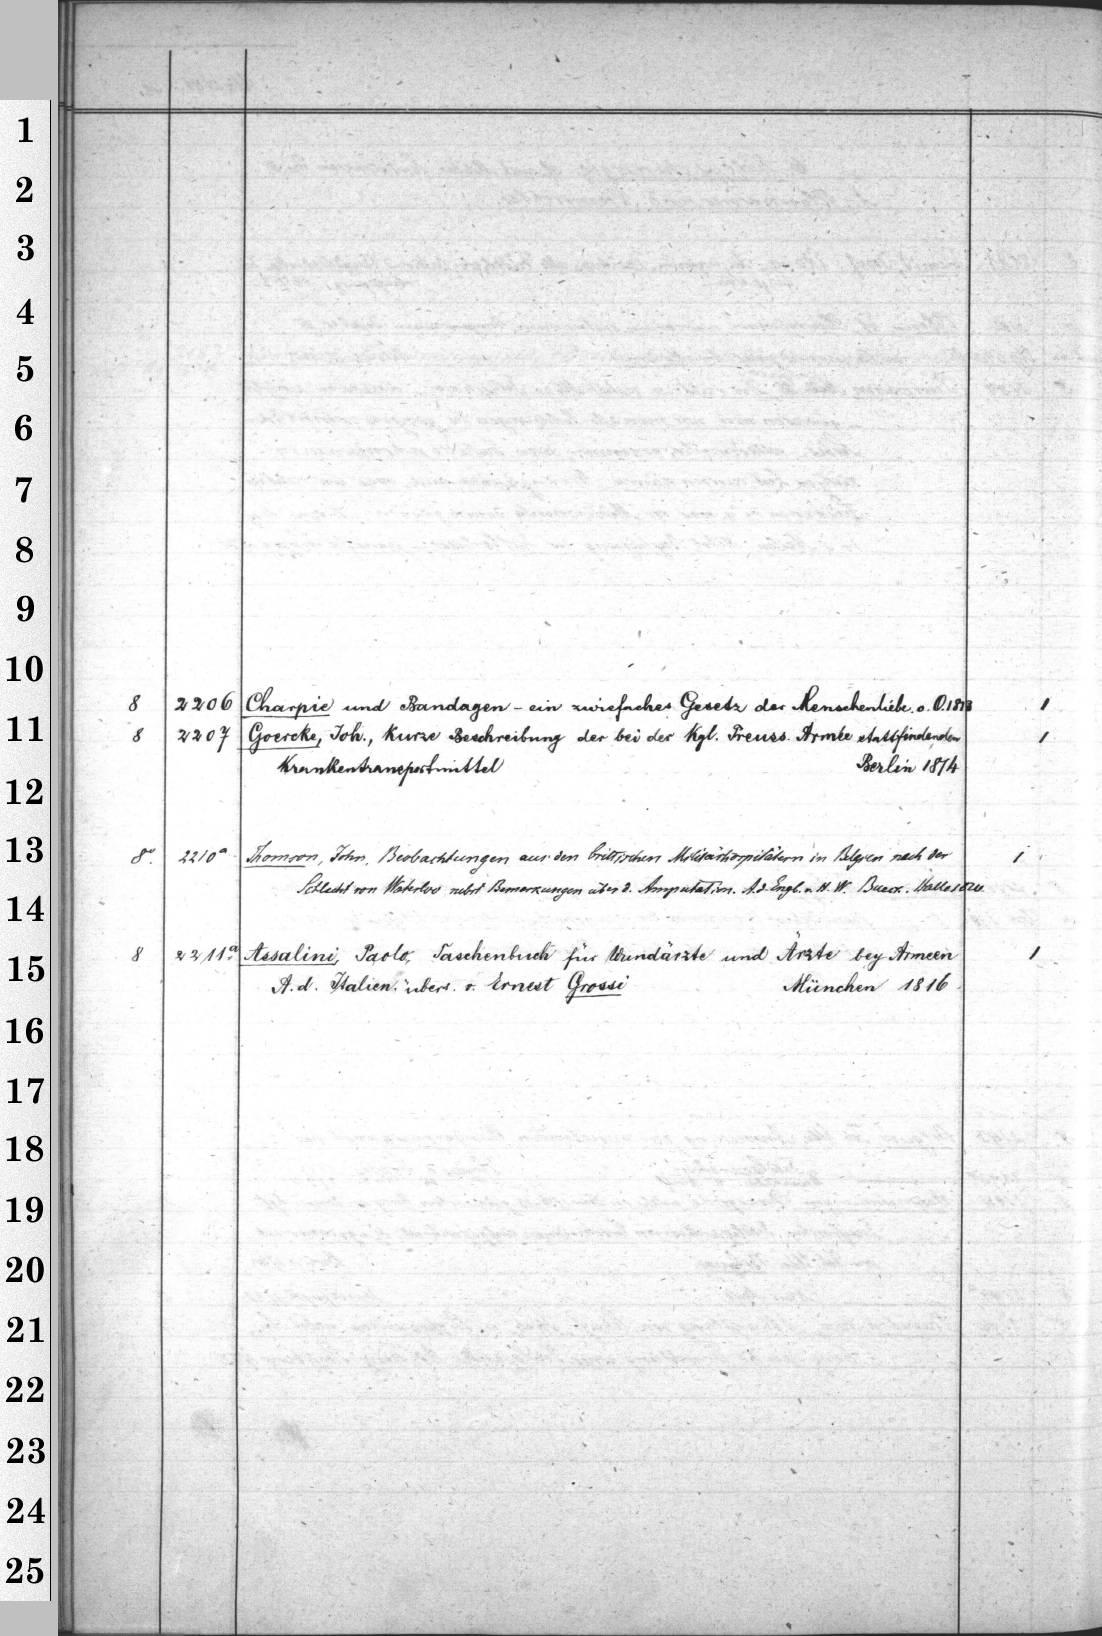 1
2
3
4
5
6
7
8
9
10
8 2206 Charpie und Bandagen - ein zwiefaches Gesetz der Menschenliebe. o. O. 1813 1
11
8 2207 Goercke, Joh., Kurze Beschreibung der bei der Kgl. Preuss. Armee stattfindenden 1
Krankentransportmittel Berlin 1814
12
13
8º. 2210a Thomson, John, Beobachtungen aus den brittischen Militärhospitälern in Belgien nach der 1
Schlacht von Waterloo nebst Bemerkungen über d. Amputation. A. d. Engl. v. H. W. Buek. Halle 1820
14
8 2211a Assalini, Paolo, Taschenbuch für Wundärzte und Ärzte bey Armeen 1
15
A. d. Italien. übers. v. Ernest Grossi München 1816
16
17
18
19
20
21
22
23
24
25